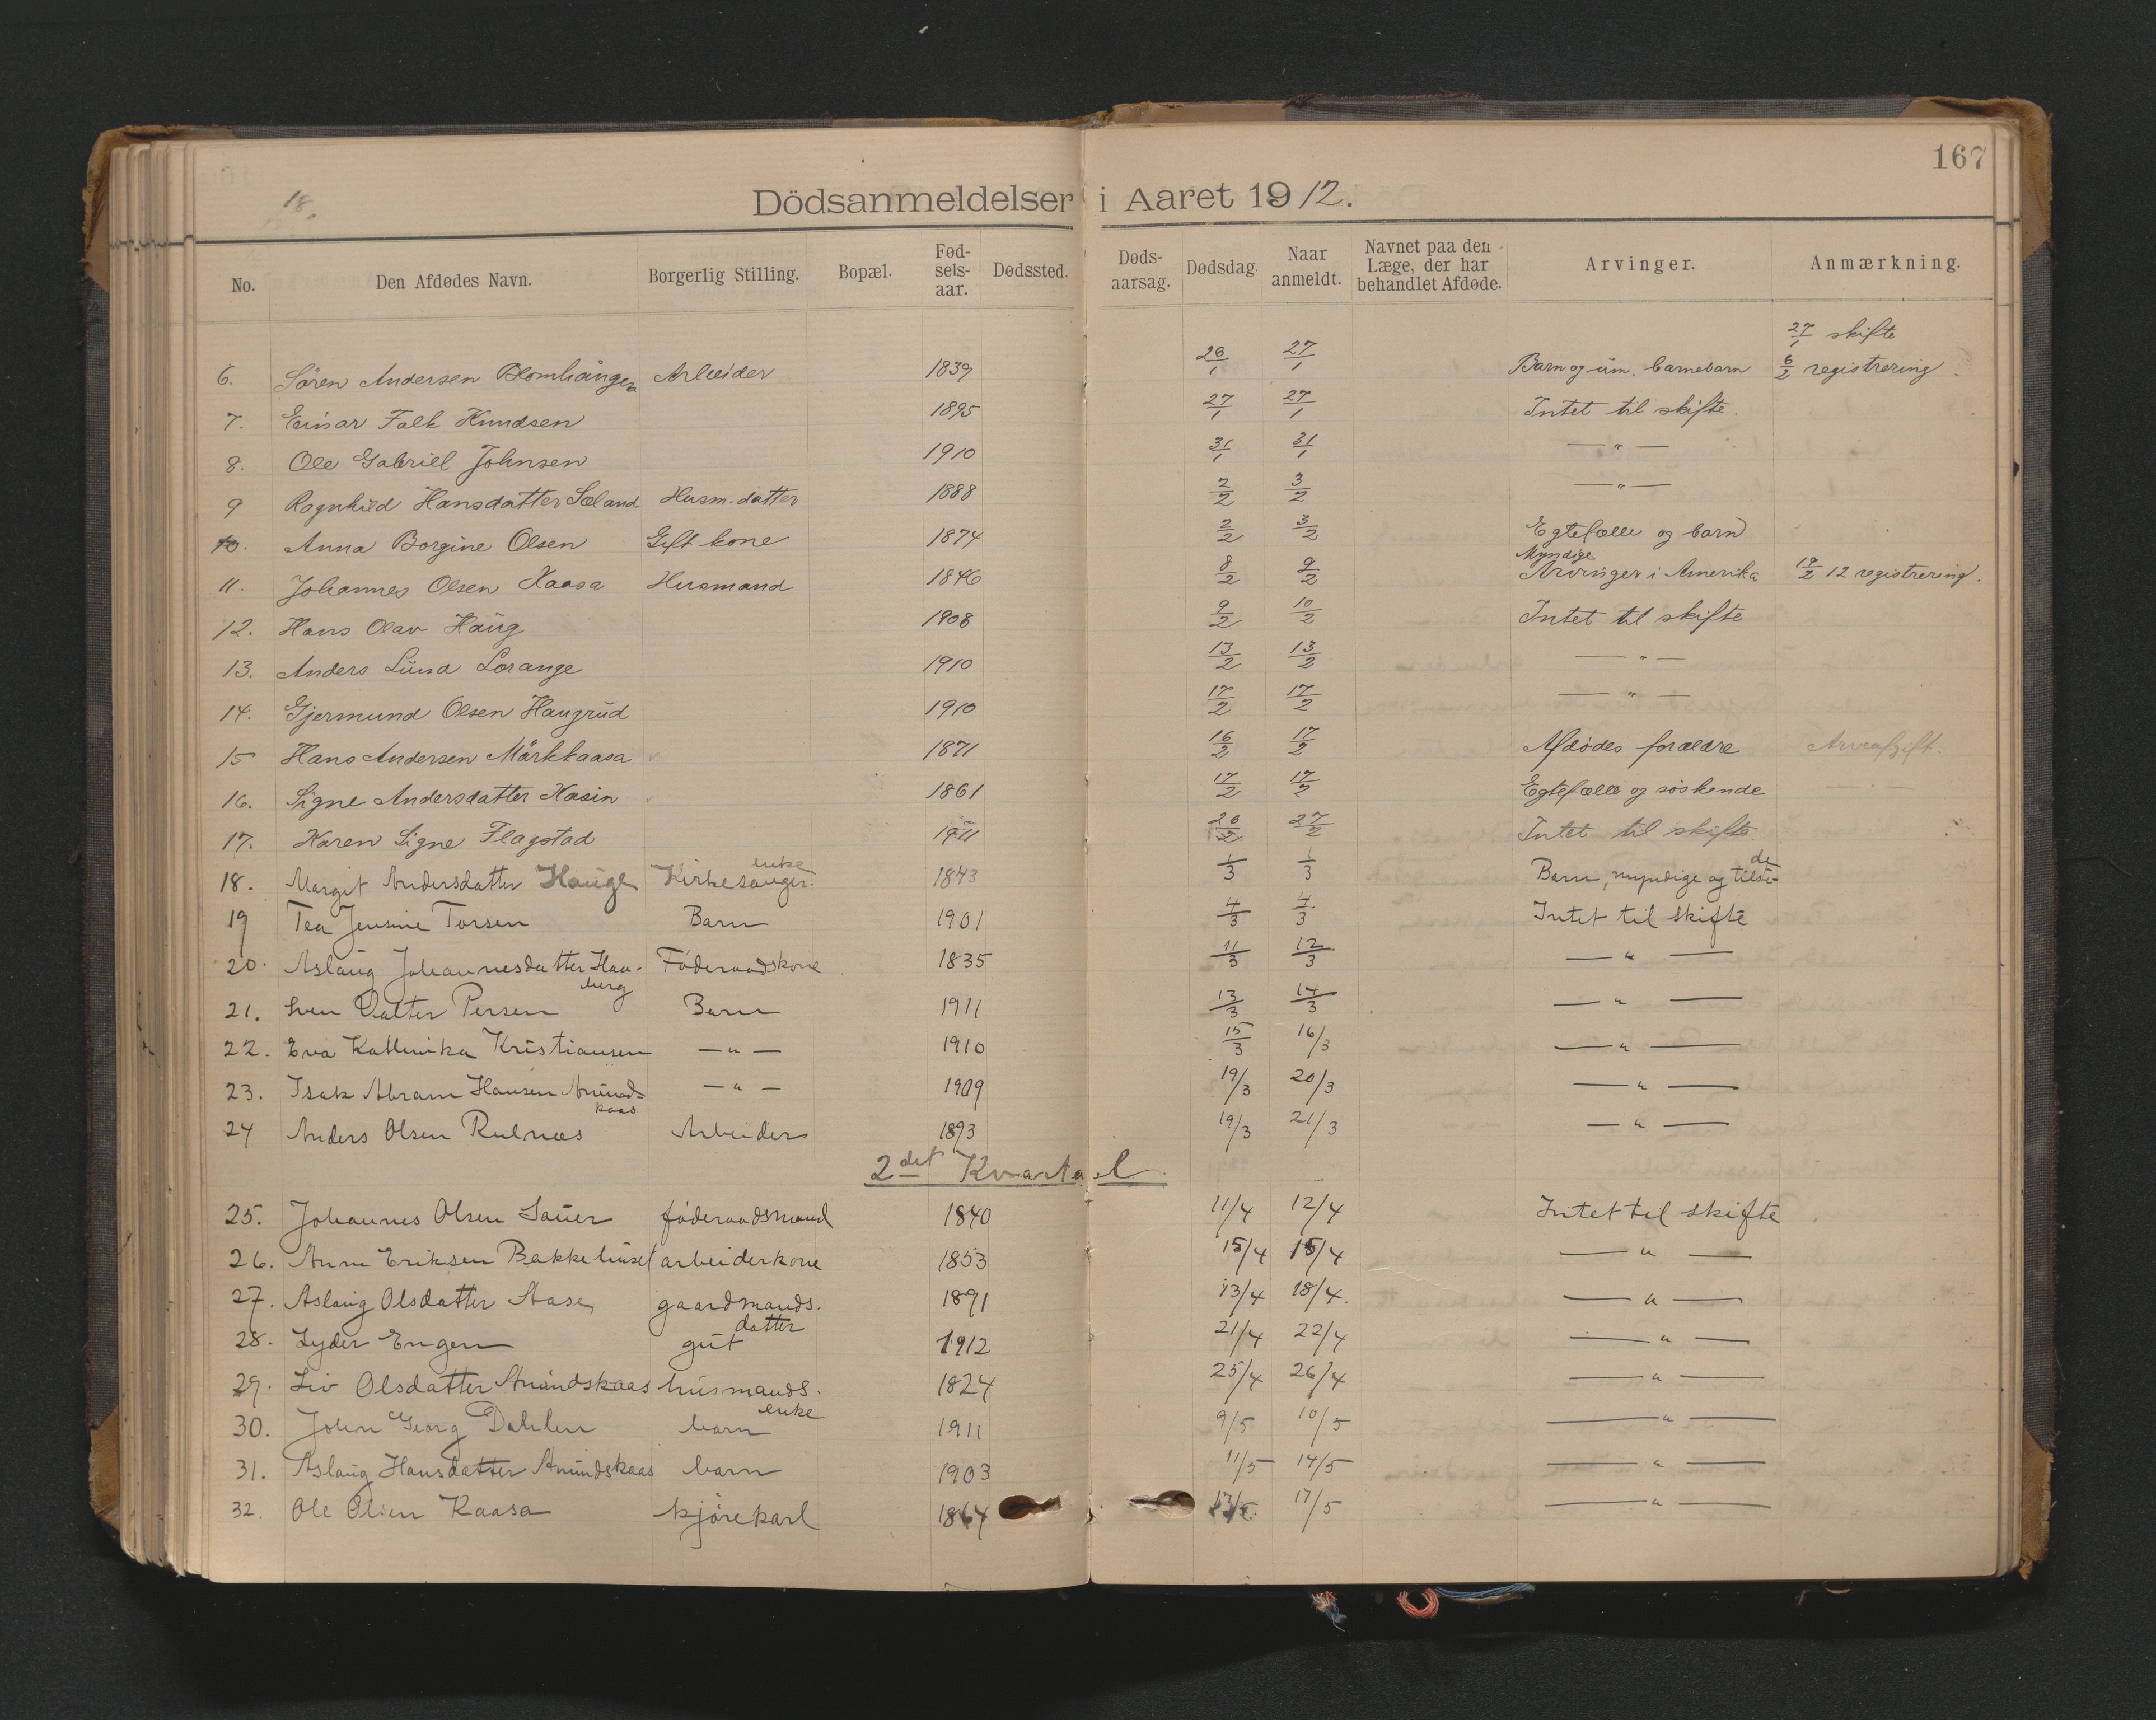 167
18.
Dödsanmeldelser i Aaret 1912.
No. Den Afdødes Navn. Borgerlig Stilling. Bopæl. Fød-sels-aar. Dødssted. Døds-aarsag. Dødsdag. Naar anmeldt. Navnet paa den Læge, der har behandlet Afdøde. Arvinger. Anmærkning.
27/1 skifte
6. Sören Andersen Blomhaugen Arbeider 1839 26/1 27/1 Barn og um. barnebarn 6/2 registrering.
7. Einar Falk Knudsen 1895 27/1 27/1 Intet til skifte.
8. Ole Gabriel Johnsen 1910 31/1 31/1 — " —
9 Ragnhild Hansdatter Sæland Husm. datter 1888 2/2 3/2 — " —
10. Anna Borgine Olsen Gift kone 1874 2/2 3/2 Egtefælle og barn
11. Johannes Olsen Kaasa Husmand 1846 8/2 9/2 Myndige Arvinger i Amerika 12 registrering.
12. Hans Olav Haug 1908 9/2 10/2 Intet til skifte
13. Anders Lund Lorange 1910 13/2 13/2 — " —
14. Gjermund Olsen Haugrud 1910 17/2 17/2 — " —
15 Hans Andersen Mörkkaasa 1871 16/2 17/2 Afdödes forældre Arveafgift.
16. Signe Andersdatter Kasin 1861 17/2 17/2 Egtefælle og söskende — " —
17. Karen Signe Flagstad 1911 26/2 27/2 Intet til skifte
18. Margit Andersdatter Hauge Kirkesanger enke 1843 1/3 1/3 Barn, myndige og tilste-de
19 Tea Jensine Torsen Barn 1901 4/3 4/3 Intet til skifte
20. Aslaug Johannesdatter Haa-berg Föderaadskone 1835 11/3 12/3 — " —
21. Sven Valter Persen Barn 1911 13/3 14/3 — " —
22. Eva Kathinka Kristiansen — " — 1910 15/3 16/3 — " —
23. Isak Abram Hansen Amund-kaas — " — 1909 19/3 20/3 — " —
24 Anders Olsen Rulnæs Arbeider 1893 19/3 21/3 — " —
2det Kvartal
25. Johannes Olsen Sauer föderaadsmand 1840 11/4 12/4 Intet til skifte
26. Anne Eriksen Bakkehuset arbeiderkone 1853 15/4 15/4 — " —
27. Aslaug Olsdatter Aase gaardmands. datter 1891 13/4 18/4. — " —
28. Lyder Engen gut 1912 21/4 22/4 — " —
29. Liv Olsdatter Amundskaas husmands. enke 1824 25/4 26/4 — " —
30. John Georg Dahlen barn 1911 9/5 10/5 — " —
31. Aslaug Hansdatter Amundskaas barn 1903 11/5 14/5 — " —
32. Ole Olsen Kaasa kjörekarl 1864 17/5 — " —